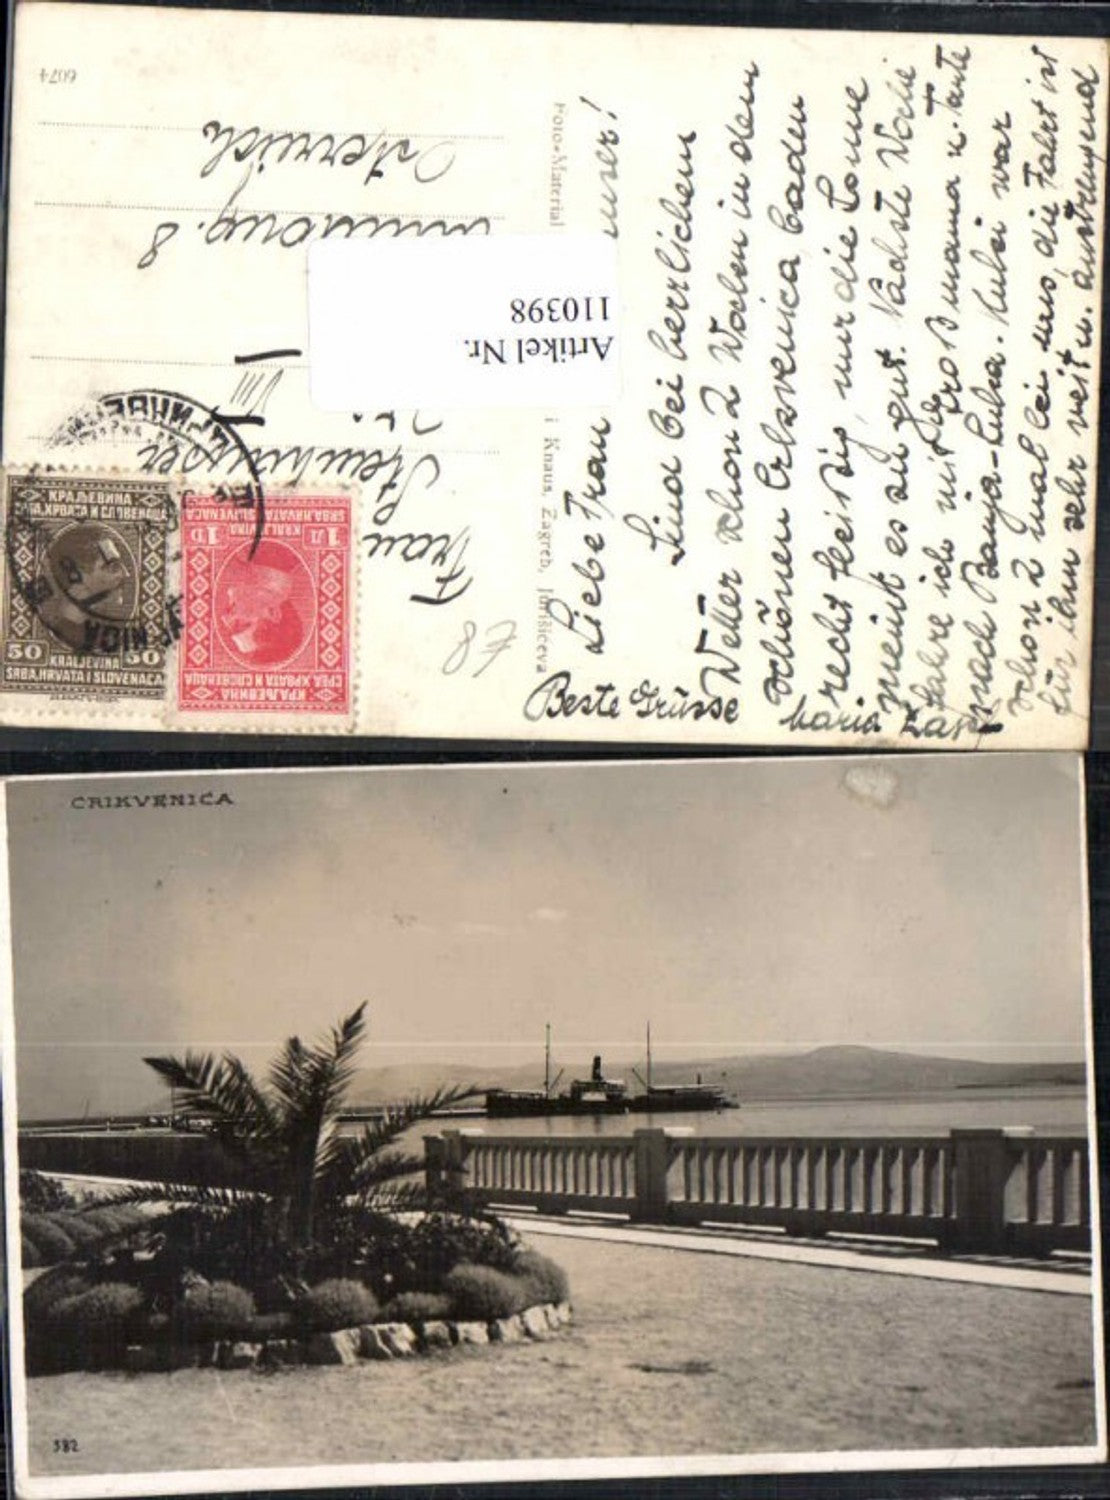 Liebe Frau
Sind bei herrlichem
Wetter schon 2 Wochen in dem
schönen Crkvenica, baden
recht fleißig, nur die Sonne
meint es zu gut. Nächste Woche
fahre ich mit Großmama u. Tante
nach Banja-Luka. Kubsi war
schon 2 mal bei uns, die Fahrt ist
für ihn sehr weit u. anstrengend
Beste Grüsse
Maria
Foto-Material
i Knaus, Zagreb, Jurišićeva
Frau
VIII
8
Österreich
6074
Artikel Nr.
110398
КРАЉЕВИНА
СРБА, ХРВАТА И СЛОВЕНАЦА
50 50
KRALJEVINA
SRBA, HRVATA I SLOVENACA
КРАЉЕВИНА
СРБА, ХРВАТА И СЛОВЕНАЦА
1Д 1D
KRALJEVINA
SRBA, HRVATA I SLOVENACA
CRIKVENICA
382